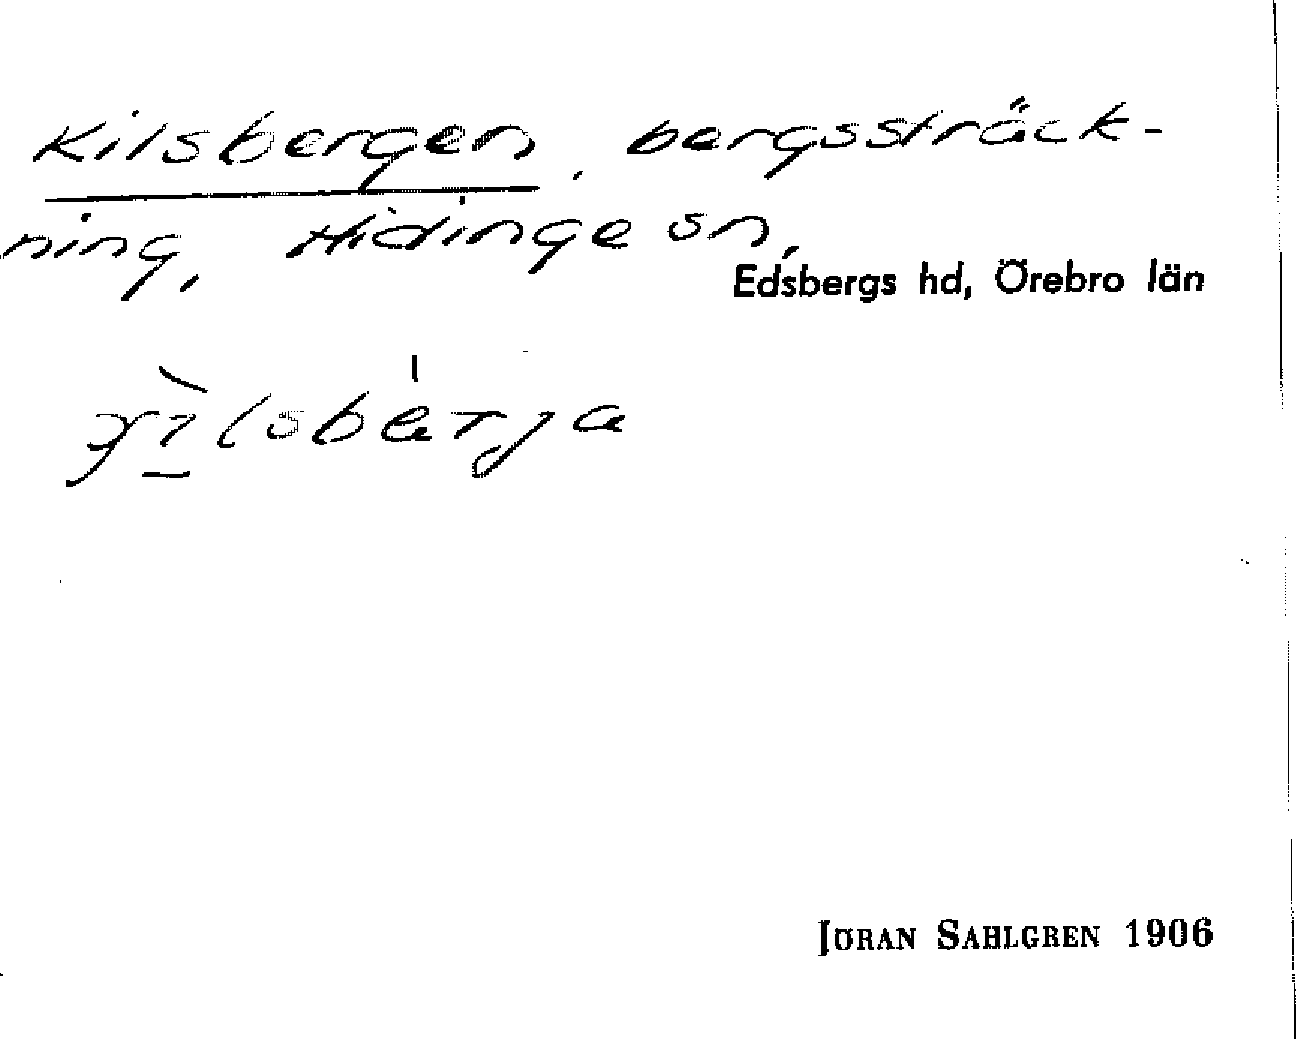 Kilsbergen, bergssträck-
ning, Hidinge sn,
Edsbergs hd, Örebro län
JÖRAN SAHLGREN 1906